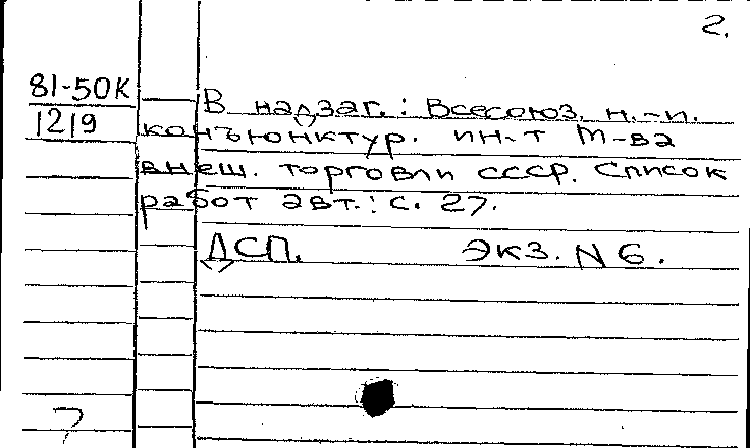 2.
81-50К
1219
В надзаг.: Всесоюз. н.-и.
конъюнктур. ин-т М-ва
внеш. торговли СССР. Список
работ авт.: с. 27.
ДСП. Экз. N 6.